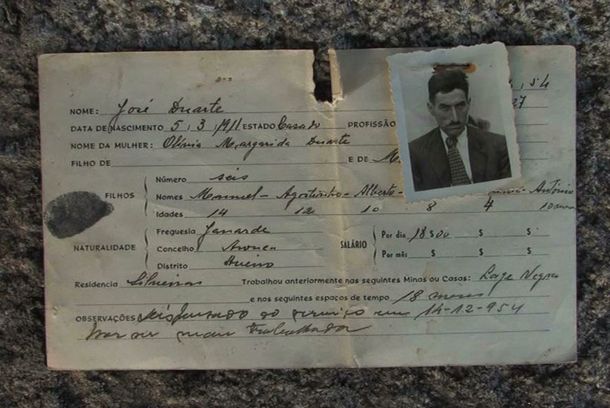 54
NOME: José Duarte 27
DATA DE NASCIMENTO 5, 3, 1911 ESTADO Casado PROFISSÃO
NOME DA MULHER: Olivia Margarida Duarte
FILHO DE E DE M
FILHOS
Número seis
Nomes Manuel - Agostinho - Alberto António
Idades 14 12 10 8 4
NATURALIDADE
Freguesia Janarde
Concelho Arouca
Distrito Aveiro
SALÁRIO
Por dia 18$00 $ $
Por mês $ $ $
Residencia Silveiras Trabalhou anteriormente nas seguintes Minas ou Casas: Lage Negra
e nos seguintes espaços de tempo 18 meses
OBSERVAÇÕES ao serviço em 14-12-954
por ser mau trabalhador